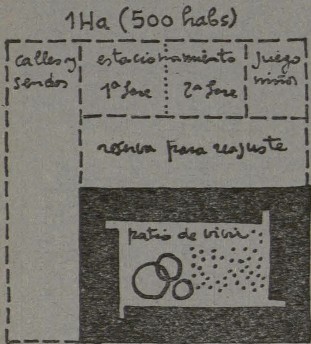 1Ha (500 habs)
calles y
sendos
estacionamiento
1ª fase
2ª fase
juego
niños
reserva para reajuste
patio de vivir